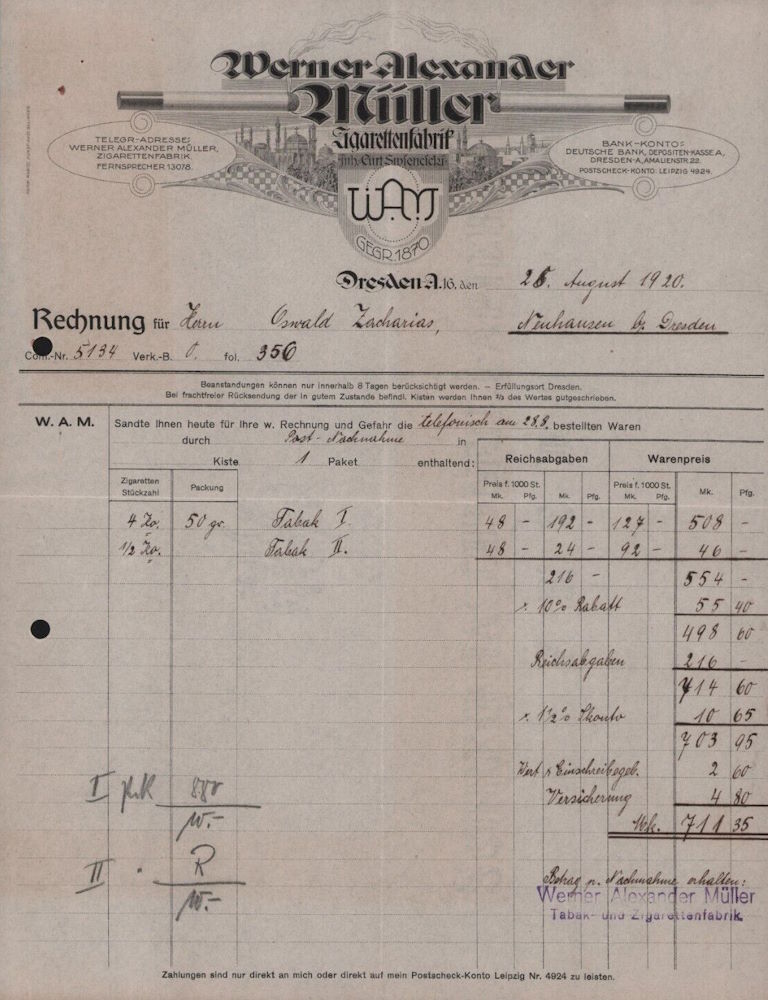 Werner Alexander
Müller
Zigarettenfabrik
Inh. Curt
TELEGR.-ADRESSE:
WERNER ALEXANDER MÜLLER,
ZIGARETTENFABRIK.
FERNSPRECHER 13078.
BANK-KONTO:
DEUTSCHE BANK, DEPOSITEN-KASSE A,
DRESDEN-A, AMALIENSTR. 22.
POSTSCHECK-KONTO: LEIPZIG 4924.
W.A.M
GEGR. 1870
Dresden A. 16, den August 1920.
Rechnung für Herrn Oswald Zacharias, Neuhausen bz Dresden
Com.-Nr. 5134 Verk.-B. 0. fol. 356
Beanstandungen können nur innerhalb 8 Tagen berücksichtigt werden. — Erfüllungsort Dresden.
Bei frachtfreier Rücksendung der in gutem Zustande befindl. Kisten werden Ihnen 2/3 des Wertes gutgeschrieben.
W. A. M. Sandte Ihnen heute für Ihre w. Rechnung und Gefahr die telefonisch am 28.8. bestellten Waren
durch Post-Nachnahme in
Kiste 1 Paket enthaltend: Reichsabgaben Warenpreis
Zigaretten Stückzahl Packung Preis f. 1000 St. Mk. Pfg. Mk. Pfg. Preis f. 1000 St. Mk. Pfg. Mk. Pfg.
4 Ko. 50 gr. Tabak I. 48 - 192 - 127 - 508 -
1/2 Ko. Tabak II. 48 - 24 - 92 - 46 -
216 - 554 -
10% Rabatt 55 40
498 60
Reichsabgaben 216 -
714 60
1 1/2% Skonto 10 65
703 95
Wert Einschreibegeb. 2 60
Versicherung 4 80
Mk. 711 35
I
II
R
Betrag p. Nachnahme erhalten:
Werner Alexander Müller
Tabak- und Zigarettenfabrik.
Zahlungen sind nur direkt an mich oder direkt auf mein Postscheck-Konto Leipzig Nr. 4924 zu leisten.